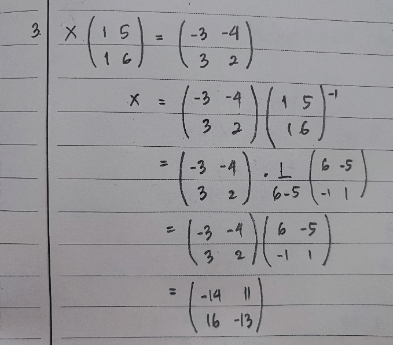 3. X (1 5 ; 1 6) = (-3 -4 ; 3 2)
X = (-3 -4 ; 3 2) (1 5 ; 1 6)^-1
= (-3 -4 ; 3 2) . 1/(6-5) (6 -5 ; -1 1)
= (-3 -4 ; 3 2) (6 -5 ; -1 1)
= (-14 11 ; 16 -13)